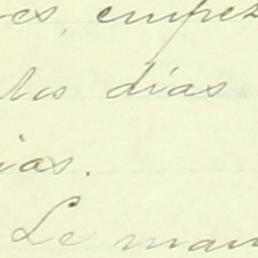 es, empez
los días
ias.
Le man